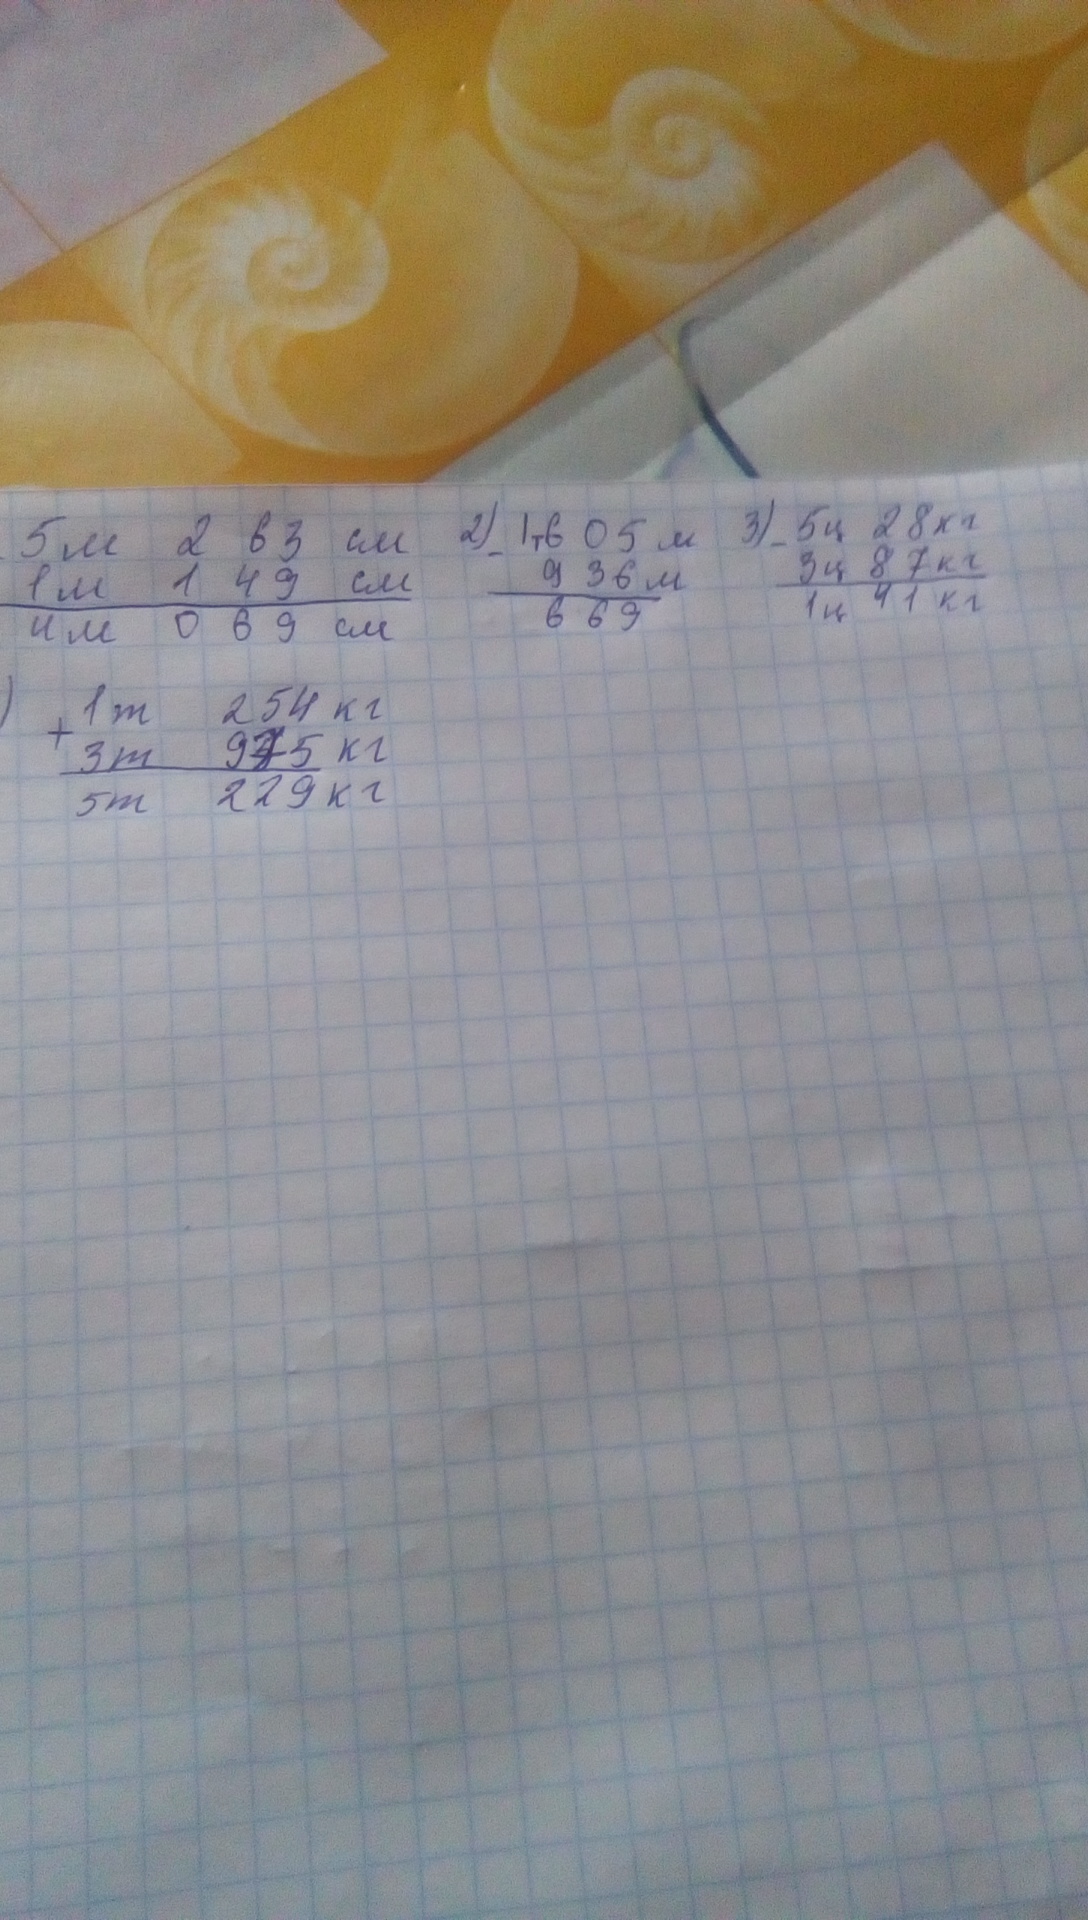 - 5м 2 63 см 2) - 1,605 м 3) - 5ц 28кг
1м 1 49 см 936м 3ц 87кг
4м 0 69 см 669 1ц 41кг
) + 1т 254 кг
3т 975 кг
5т 229 кг